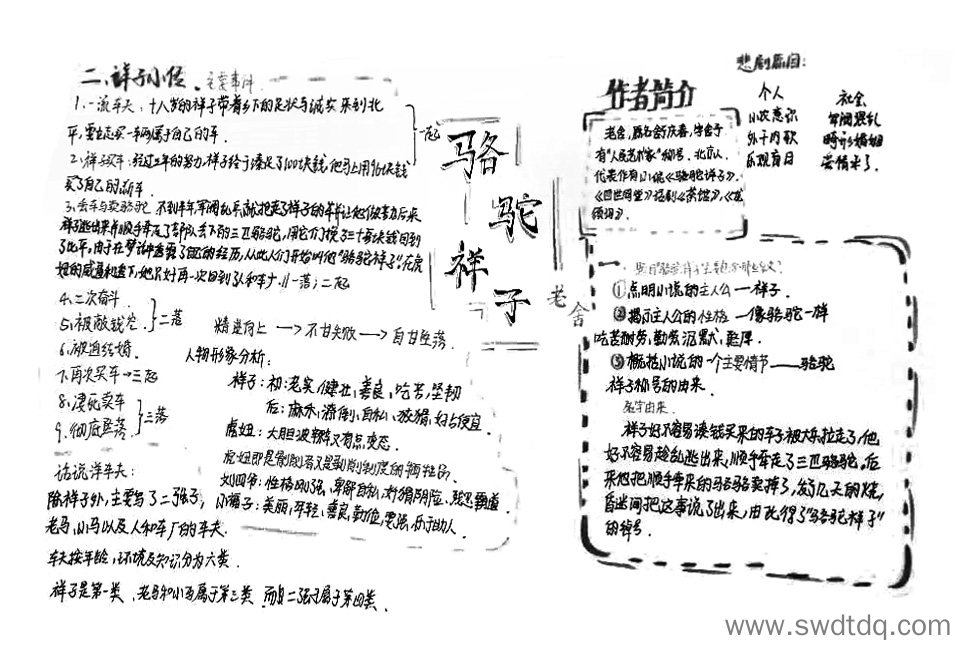 二、祥子小传 主要事件
1.一流车夫:十八岁的祥子带着乡下的足状与诚实来到北
平,要去买一车两属于自己的车.
一起
2.祥子买车:经过三年的努力祥子终于凑足了100块钱他马上用96块钱
买了自己的新车
3.丢车与卖骆驼 不到半年军阀乱兵就抢走了祥子的车并让他做苦力后来
祥子逃出来并顺手牵走了部队丢下的三匹骆驼,用它们换了三十五块钱回到
了北平,由于在梦话中透露了自己的经历,从此人们开始叫他"骆驼祥子"
一落;二起
4.二次奋斗.
5.被敲钱光
二落
6.被迫结婚.
7.再次买车→三起
8.虎死卖车
9.彻底坠落
三落
精进向上 → 不甘失败 → 自甘坠落
人物形象分析:
祥子:初:老实,健壮,善良,吃苦,坚韧
后:麻木,潦倒,自私,狡猾,好占便宜.
虎妞:大胆泼辣又有点变态.
虎妞即是剥削者又是剥削制度的牺牲品
刘四爷:性格刚强,卑鄙自私,奸猾阴险,
小福子:美丽,年轻,善良,勤俭,要强,乐于助人.
话说洋车夫:
除祥子外,主要写了二强子,
老马,小马以及人和车厂的车夫.
车夫按年龄,环境及知识分为六类.
祥子是第一类,老马和小马属于第三类 而二强子属于第四类.
骆
驼
祥
子
老
舍
作者简介
老舍,原名舒庆春,字舍予
有"人民艺术家"称号.北京人.
代表作有小说《骆驼祥子》.
《四世同堂》话剧《茶馆》,《龙
须沟》.
悲剧原因:
个人
小农意识
外干内软
乐观盲目
社会
军阀混乱
畸形婚姻
爱情末了.
一.
①点明小说的主人公—祥子.
②揭示主人公的性格 —像骆驼一样
吃苦耐劳,勤劳沉默,坚厚.
③概括小说的一个主要情节——骆驼
祥子称号的由来.
名字由来.
祥子好不容易凑钱买来的车子被大兵拉走了,他
好不容易趁乱逃出来,顺手牵走了三匹骆驼,后
来他把顺手牵来的骆驼卖掉了,发了几天的烧,
昏迷间把这事说了出来,由此得了"骆驼祥子"
的绰号.
www.swdtdq.com